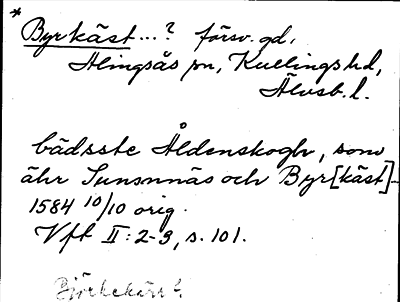 *
Byrkäst...? försv. gd,
Alingsås sn, Kullings hd,
Älvsb. l.
bådsste Åldenskogh, som
ähr Sunsnnäs och Byr[käst]-
1584 10/10 orig.
Vft II:2-3, s. 101.